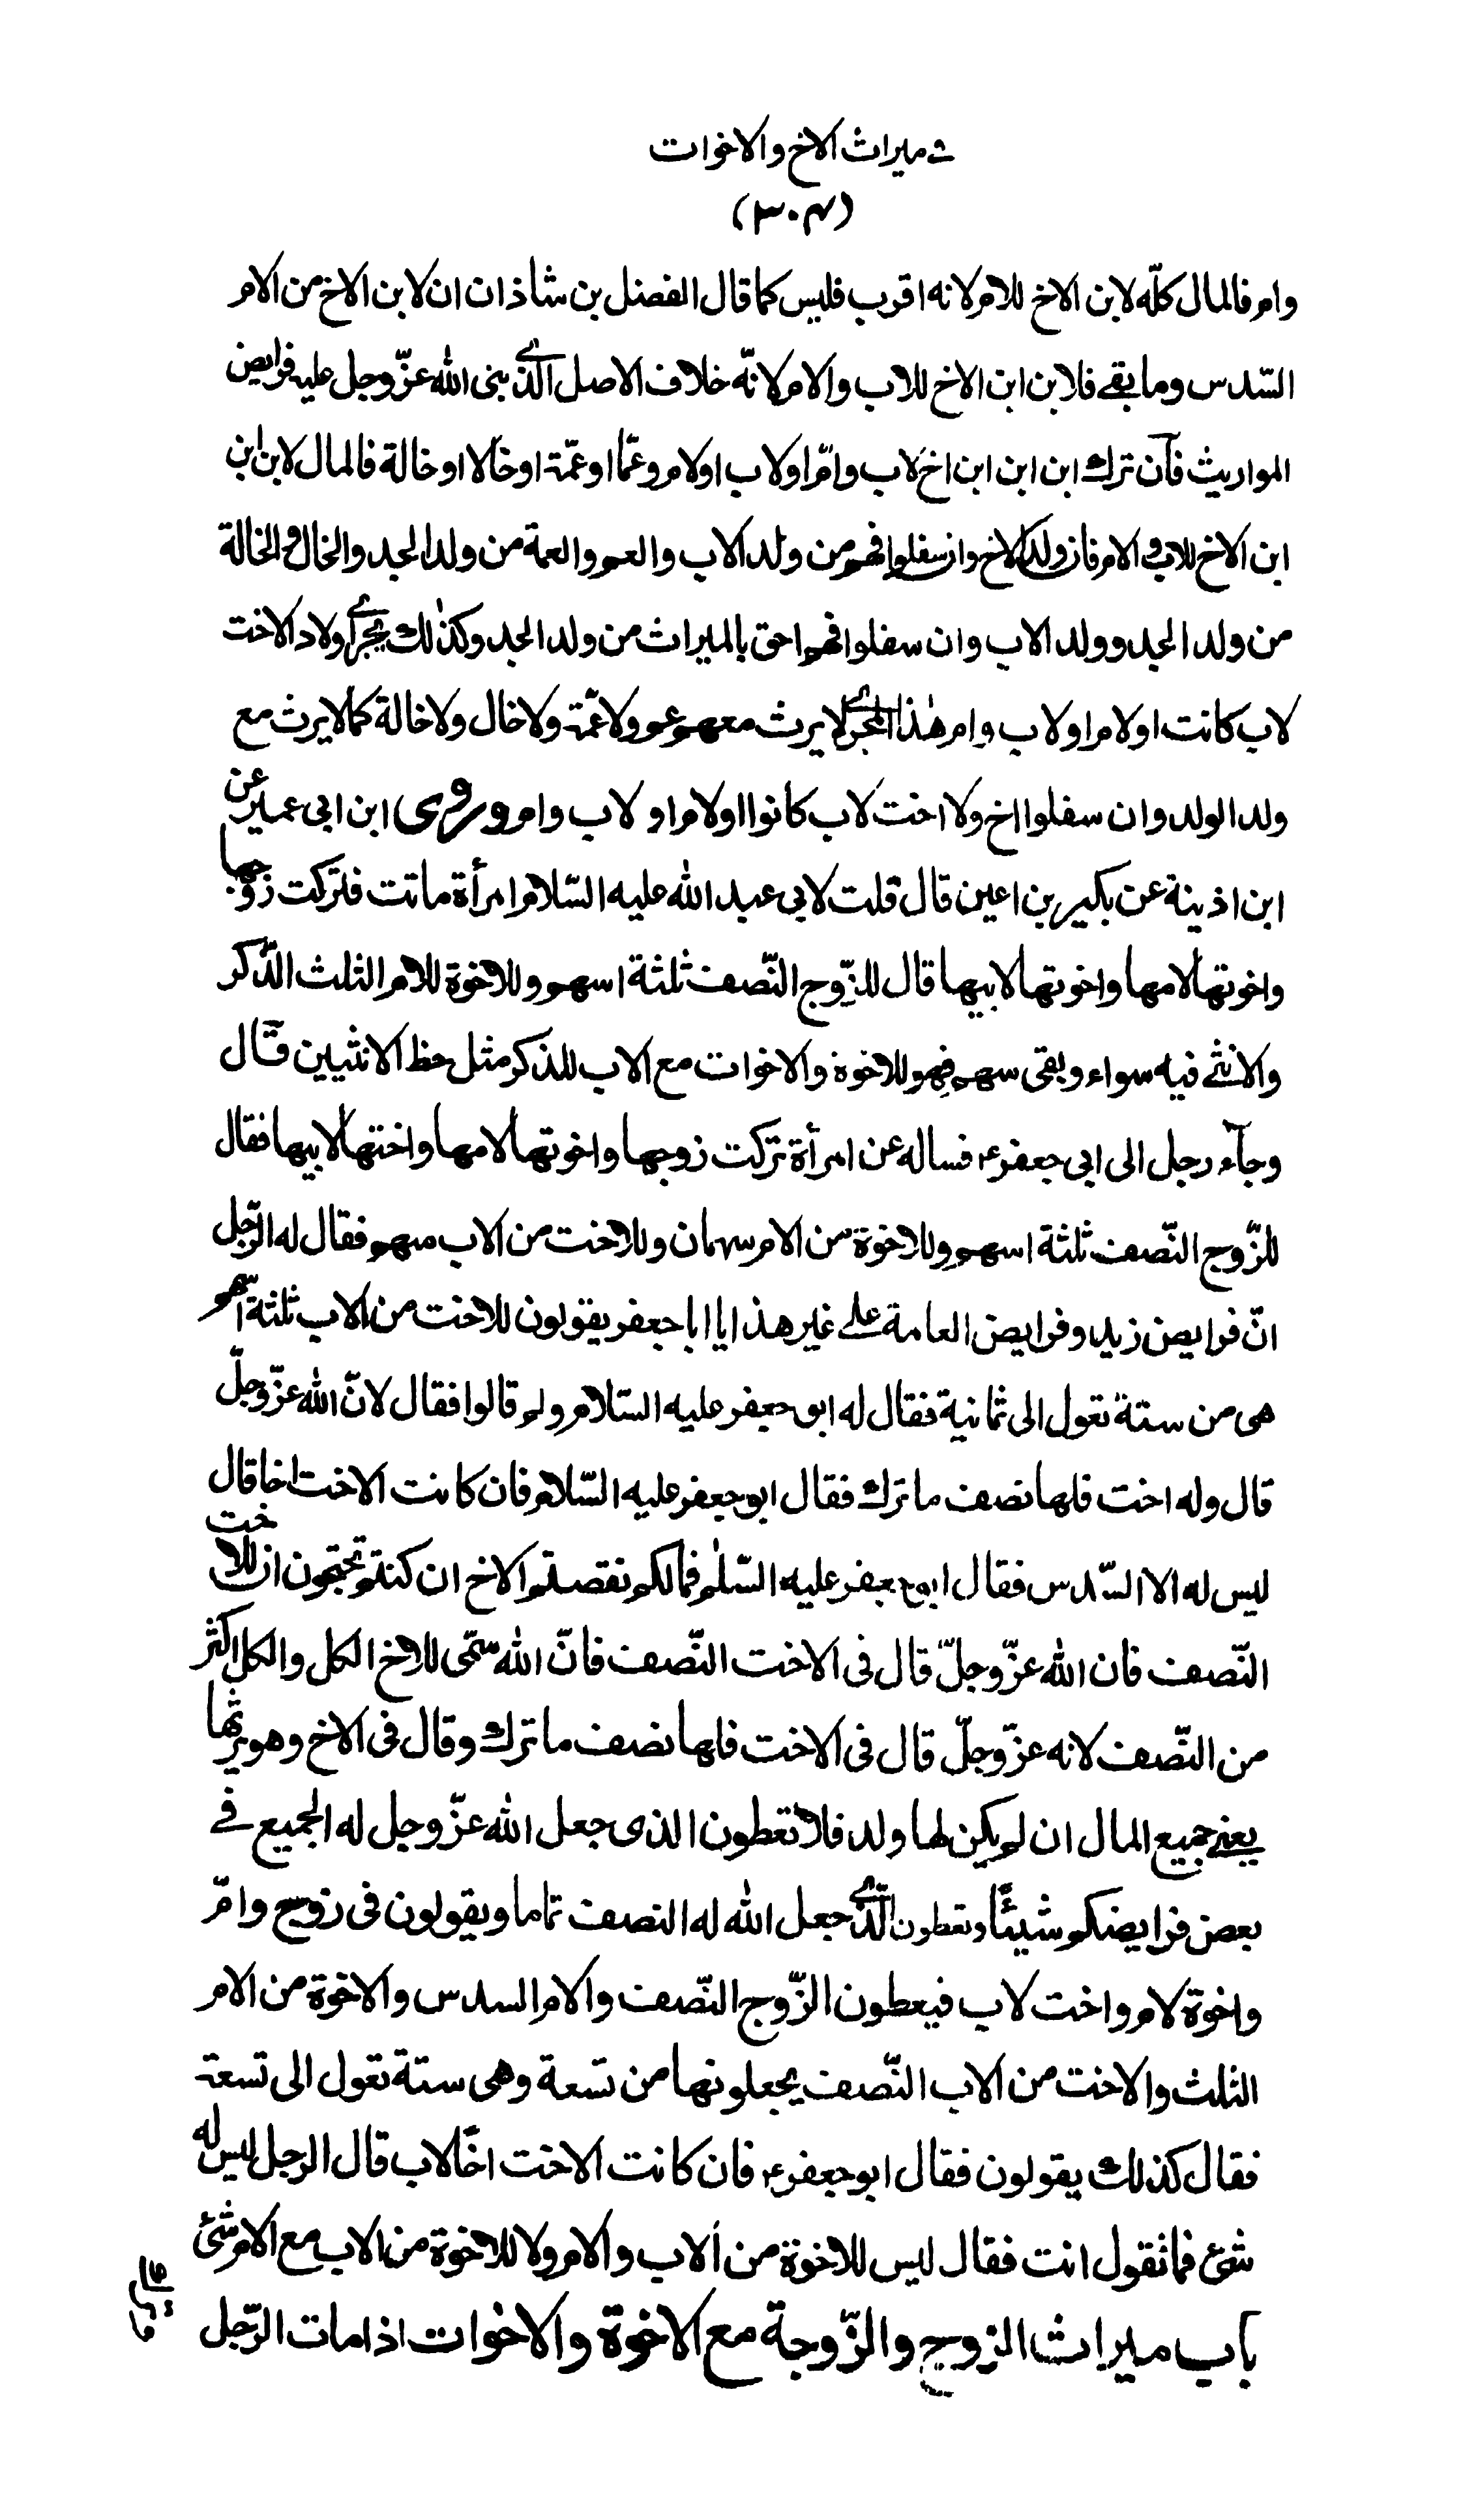 في ميراث الاخ والاخوات
(٣٠٤)
وام فالمال كلّه لابن الاخ للام لانه اقرب فليس كما قال الفضل بن شاذان ان لابن الاخ من الام
السّدس وما بقے فلابن ابن الاخ للاب والام لانّه خلاف الاصل الّذے بنى الله عزّ وجل عليه فرايض
المواريث فآن ترك ابن ابن ابن اخ لاب وامّ او لاب او لام وعمّا او عمّة او خالا او خالة فالمال لابن ابن
ابن الاخ للاب و الام فان ولد الاخ وان سفلوا فهم من ولد الاب والعم والعمة من ولد الجد والخال والخالة
من ولد الجد وولد الاب وان سفلوا فهم احق بالميراث من ولد الجد وكذلك يجرے اولاد الاخت
لاب كانت او لام او لاب وام هذا المجرے لا يرث معهم عم ولا عمّة ولا خال ولا خالة كما لا يرث مع
ولد الولد وان سفلوا اخ ولا اخت لاب كانوا او لام او لاب وام وروى ابن ابى عمير عن
ابن اذينة عن بكير بن اعين قال قلت لابى عبد الله عليه السّلام امرأة ماتت فتركت زوجها
واخوتها لامها واخوتها لابيها قال للزّوج النّصف ثلثة اسهم وللاخوة للام الثلث الذّكر
والانثے فيه سواء وبقى سهم فهو للاخوة والاخوات مع الاب للذكر مثل حظ الانثيين قال
وجآء رجل الى ابى جعفر ع فساله عن امرأة تركت زوجها واخوتها لامها واختها لابيها فقال
للزّوج النّصف ثلثة اسهم وللاخوة من الام سهمان وللاخت من الاب سهم فقال له الرّجل
انّ فرايض زيد وفرايض العامة علے غير هذا يا ابا جعفر يقولون للاخت من الاب ثلثة اسهم
هى من ستة تعول الى ثمانية فقال له ابو جعفر عليه السّلام ولم قالوا فقال لانّ الله عزّ وجلّ
قال وله اخت فلها نصف ما ترك فقال ابو جعفر عليه السّلام فان كانت الاخت اخا قال
ليس له الا السّدس فقال ابو جعفر عليه السّلم فمالكم نقصتم الاخ ان كنتم تحتجون ان للاخت
النّصف فان الله عزّ وجلّ قال فى الاخت النّصف فانّ الله سمّى للاخ الكل والكل اكثر
من النّصف لانه عزّ وجلّ قال فى الاخت فلها نصف ما ترك وقال فى الاخ وهو يرثها
يعنے جميع المال ان لم يكن لها ولد فلا تعطون الذى جعل الله عزّ وجل له الجميع فے
بعض فرايضكم شيئًا وتعطون الّذے جعل الله له النصف تاما ويقولون فى زوج وامّ
واخوة لام واخت لاب فيعطون الزّوج النّصف والام السدس والاخوة من الام
الثلث والاخت من الاب النّصف يجعلونها من تسعة وهى ستة تعول الى تسعة
فقال كذلك يقولون فقال ابو جعفر ع فان كانت الاخت اخًا لاب قال الرجل ليس له
شئ فما تقول انت فقال ليس للاخوة من الاب والام ولا للاخوة من الاب مع الام شئ
باب ميراث الزوج والزّوجة مع الاخوة والاخوات اذا مات الرّجل